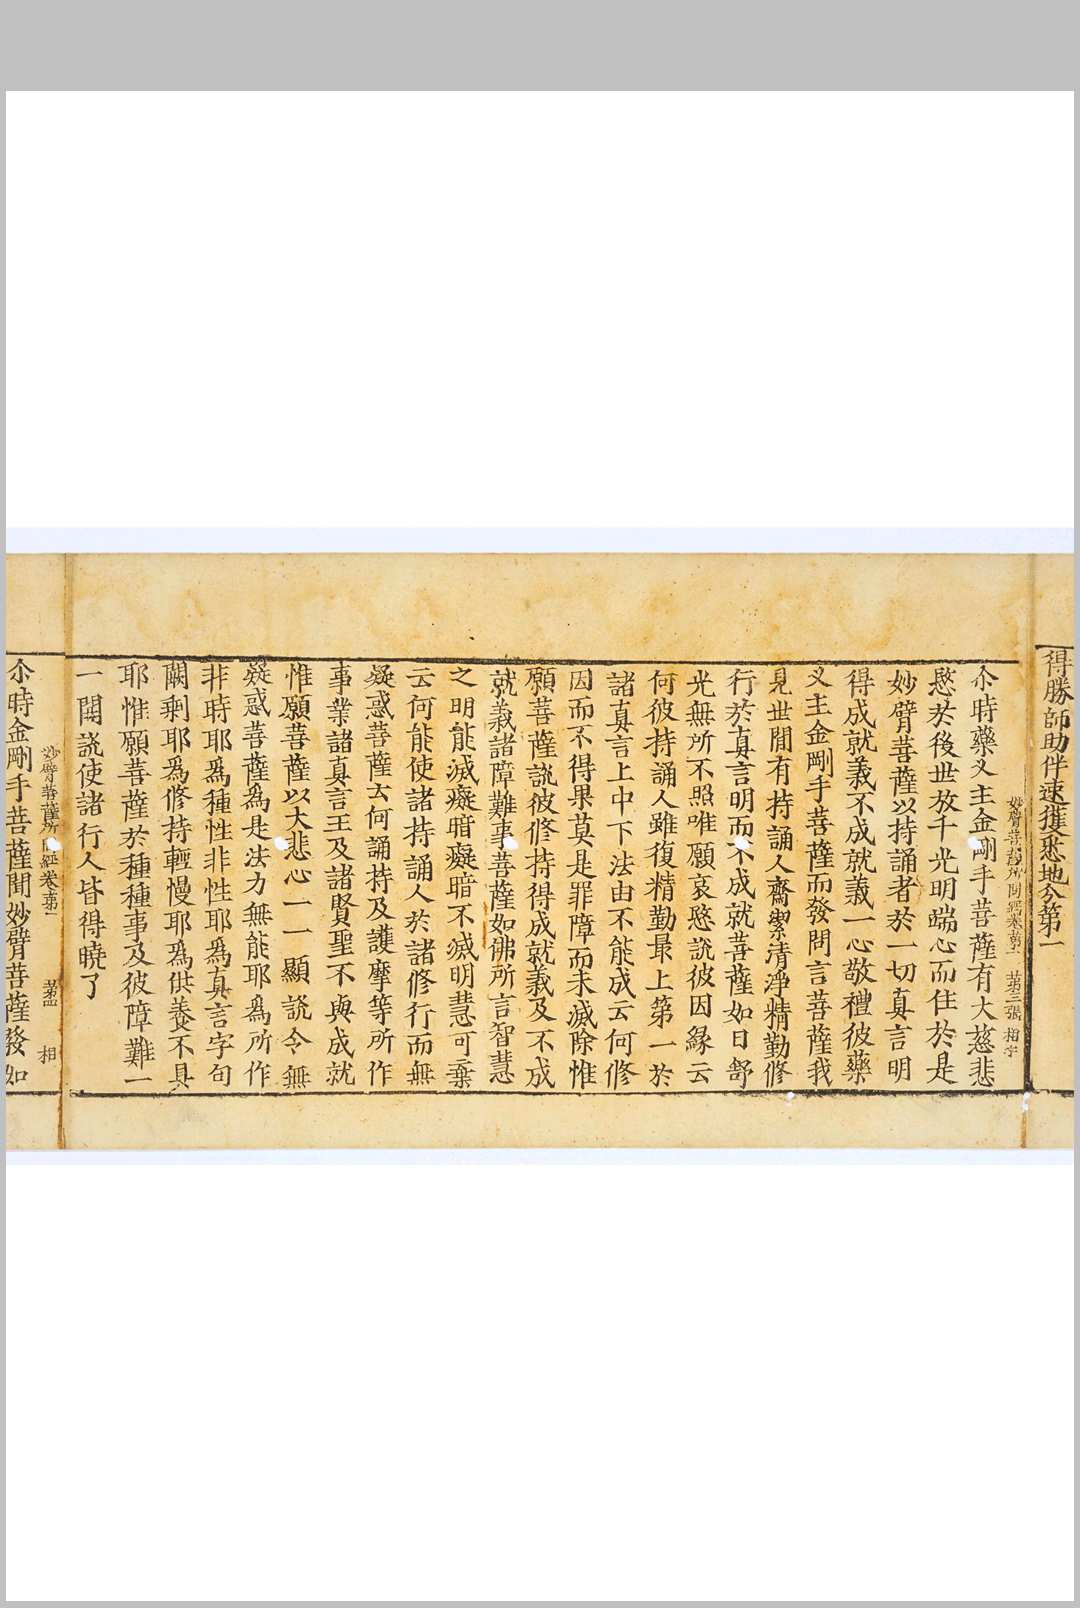 得勝師助伴速獲悉地分第一
妙臂菩薩所問經卷第一　第三張　相字
尒時藥叉主金剛手菩薩有大慈悲
愍於後世放千光明端心而住於是
妙臂菩薩以持誦者於一切真言明
得成就義不成就義一心敬禮彼藥
叉主金剛手菩薩而發問言菩薩我
見世間有持誦人齋潔清淨精勤修
行於真言明而不成就菩薩如日舒
光無所不照唯願哀愍說彼因緣云
何彼持誦人雖復精勤最上第一於
諸真言上中下法由不能成云何修
因而不得果莫是罪障而未滅除惟
願菩薩說彼修持得成就義及不成
就義諸障難事菩薩如佛所言智慧
之明能滅癡暗癡暗不滅明慧可棄
云何能使諸持誦人於諸修行而無
疑惑菩薩云何誦持及護摩等所作
事業諸真言王及諸賢聖不與成就
惟願菩薩以大悲心一一顯說令無
疑惑菩薩為是法力無能耶為所作
非時耶為種性非性耶為真言字句
闕剩耶為修持輕慢耶為供養不具
耶惟願菩薩於種種事及彼障難一
一開說使諸行人皆得曉了
妙臂菩薩所問經卷第一　第四　相
尒時金剛手菩薩聞妙臂菩薩發如